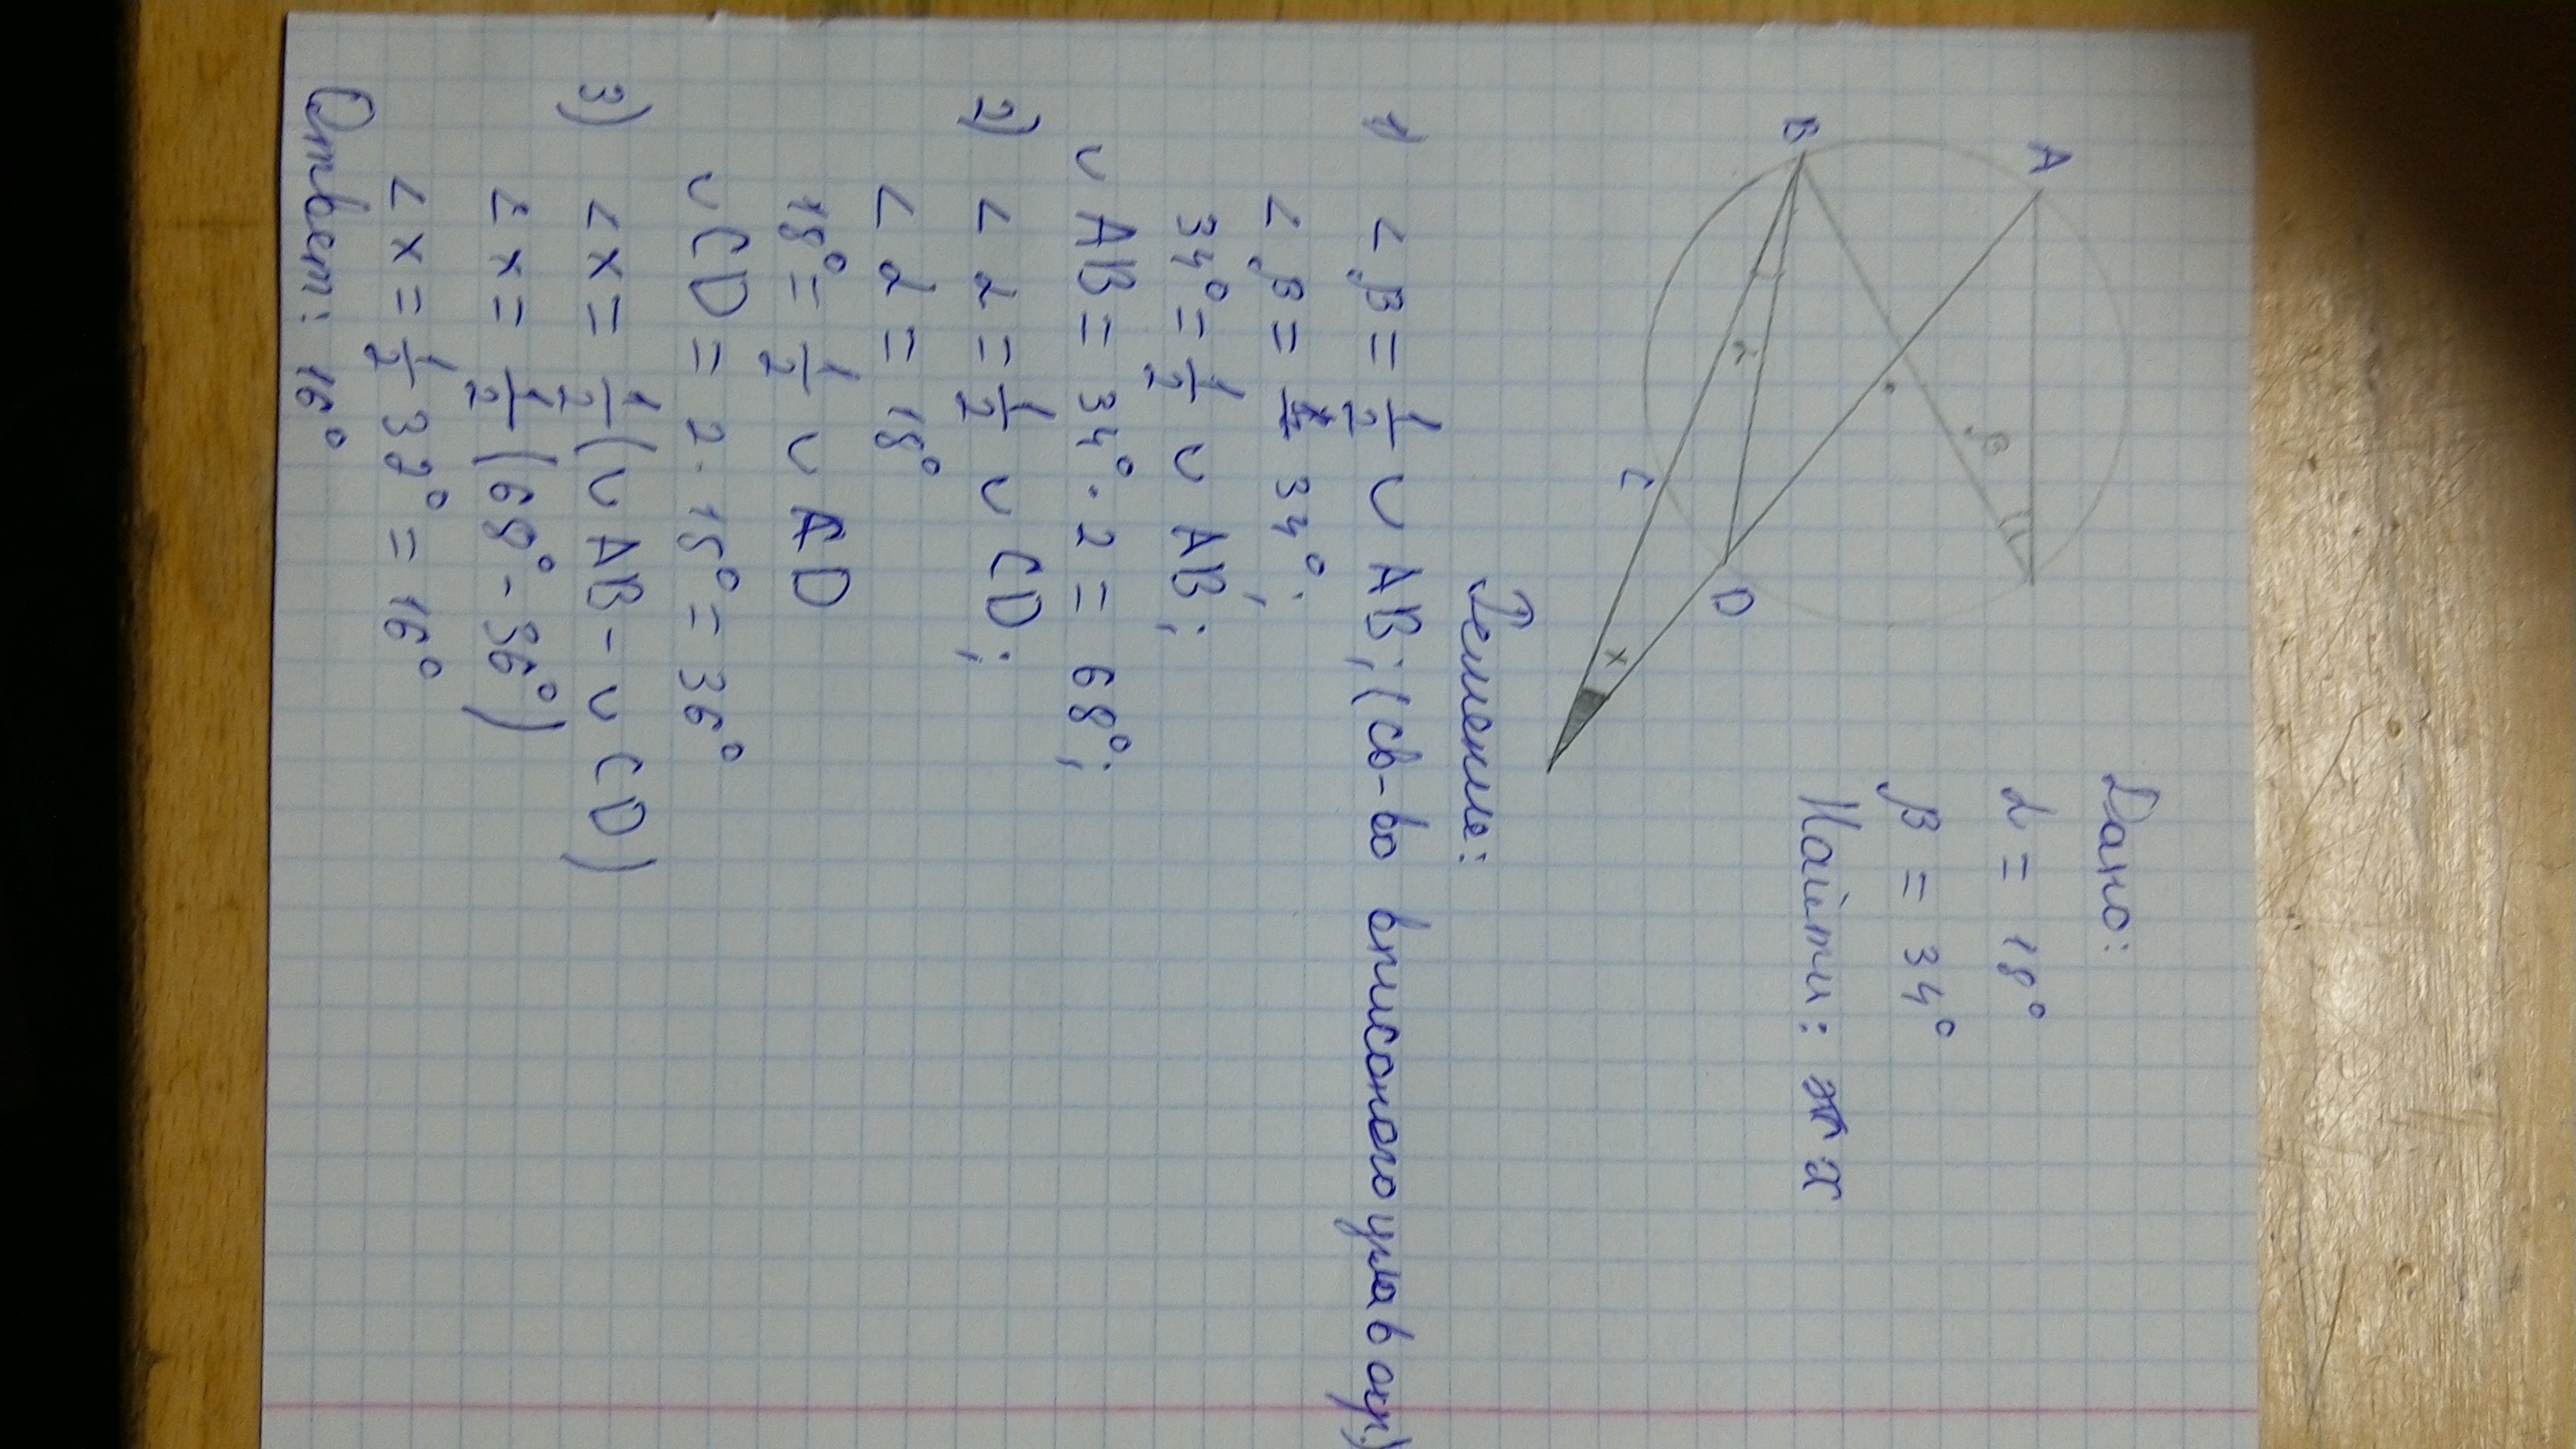 A
B
C
D
x
α
β
Дано:
α = 18°
β = 34°
Найти: x
Решение:
1) ∠β = 1/2 ∪ AB; (св-во вписоного угла в окр.)
∠β = 34°;
34° = 1/2 ∪ AB;
∪ AB = 34° · 2 = 68°;
2) ∠α = 1/2 ∪ CD;
∠α = 18°
18° = 1/2 ∪ CD
∪ CD = 2 · 18° = 36°
3) ∠x = 1/2 (∪ AB - ∪ CD)
∠x = 1/2 (68° - 36°)
∠x = 1/2 32° = 16°
Ответ: 16°